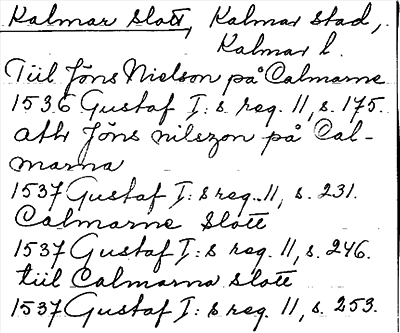 Kalmar slott, Kalmar stad,
Kalmar l.
Tiil Jöns Nielson på Calmarne
1536 Gustaf I:s reg. 11, s. 175.
ath Jöns nilszon på Cal-
marna
1537 Gustaf I:s reg. 11, s. 231.
Calmarne slott
1537 Gustaf I:s reg. 11, s. 246.
tiil Calmarna slott
1537 Gustaf I:s reg. 11, s. 253.